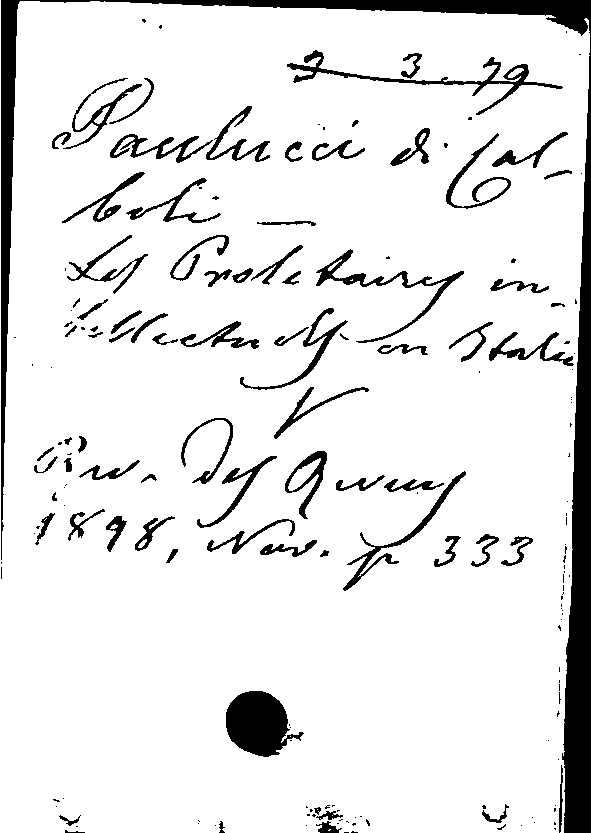 3 3.79
Paulucci di Cal-
boli —
Les Proletaires in-
tellectuels en Italie
V
Rev. des Revues
1898, Nov. p 333